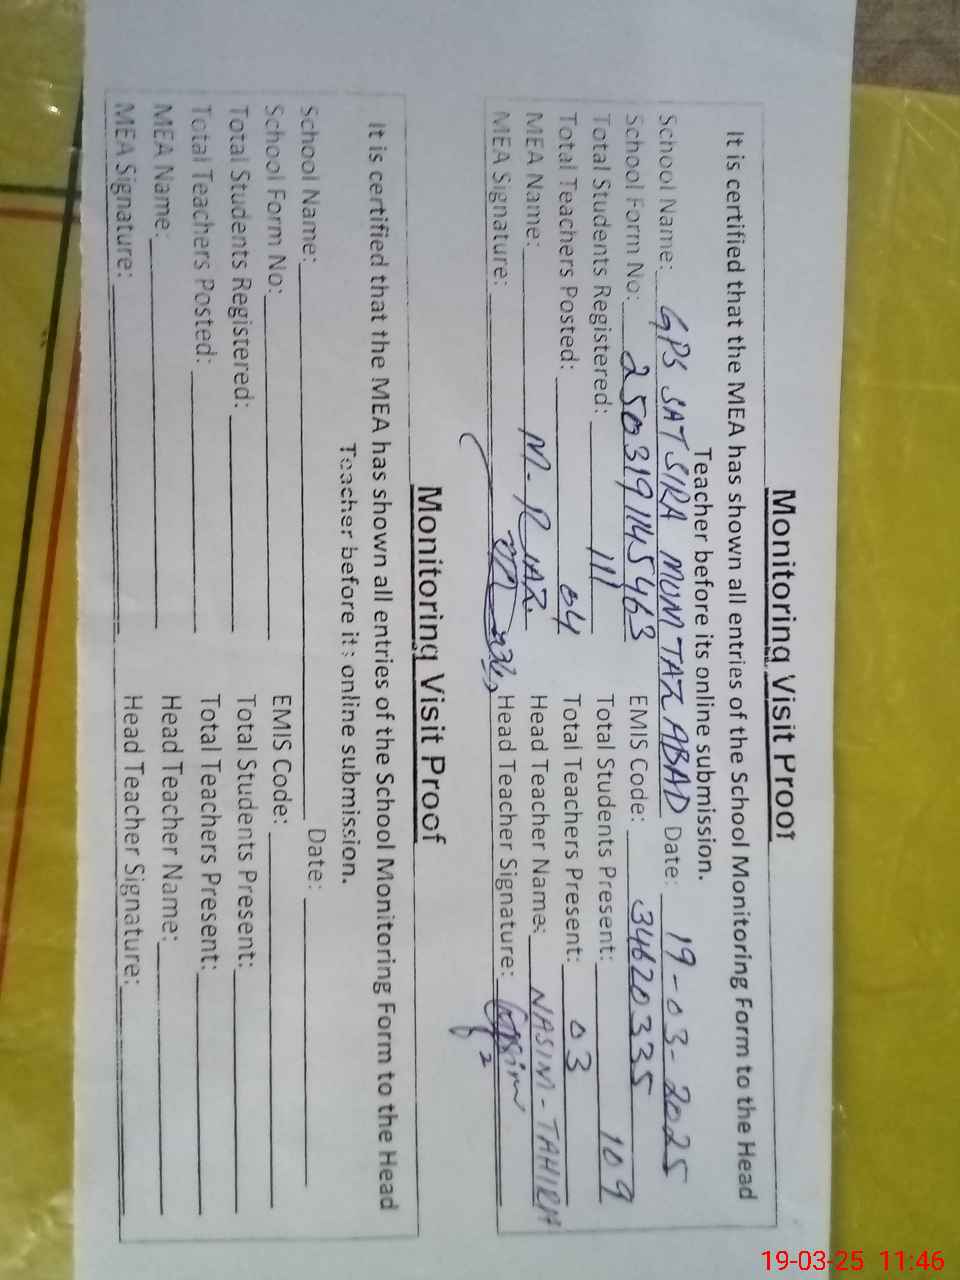 Monitoring Visit Proof
It is certified that the MEA has shown all entries of the School Monitoring Form to the Head
Teacher before its online submission.
School Name: GPS SATSIRA MUMTAZ ABAD Date: 19-03-2025
School Form No: 2503191145463 EMIS Code: 34620335
Total Students Registered: 111 Total Students Present: 109
Total Teachers Posted: 04 Total Teachers Present: 03
MEA Name: M-RIAZ Head Teacher Name: NASIM-TAHIRA
MEA Signature: Head Teacher Signature:
Monitoring Visit Proof
It is certified that the MEA has shown all entries of the School Monitoring Form to the Head
Teacher before its online submission.
School Name: Date:
School Form No: EMIS Code:
Total Students Registered: Total Students Present:
Total Teachers Posted: Total Teachers Present:
MEA Name: Head Teacher Name:
MEA Signature: Head Teacher Signature:
19-03-25 11:46